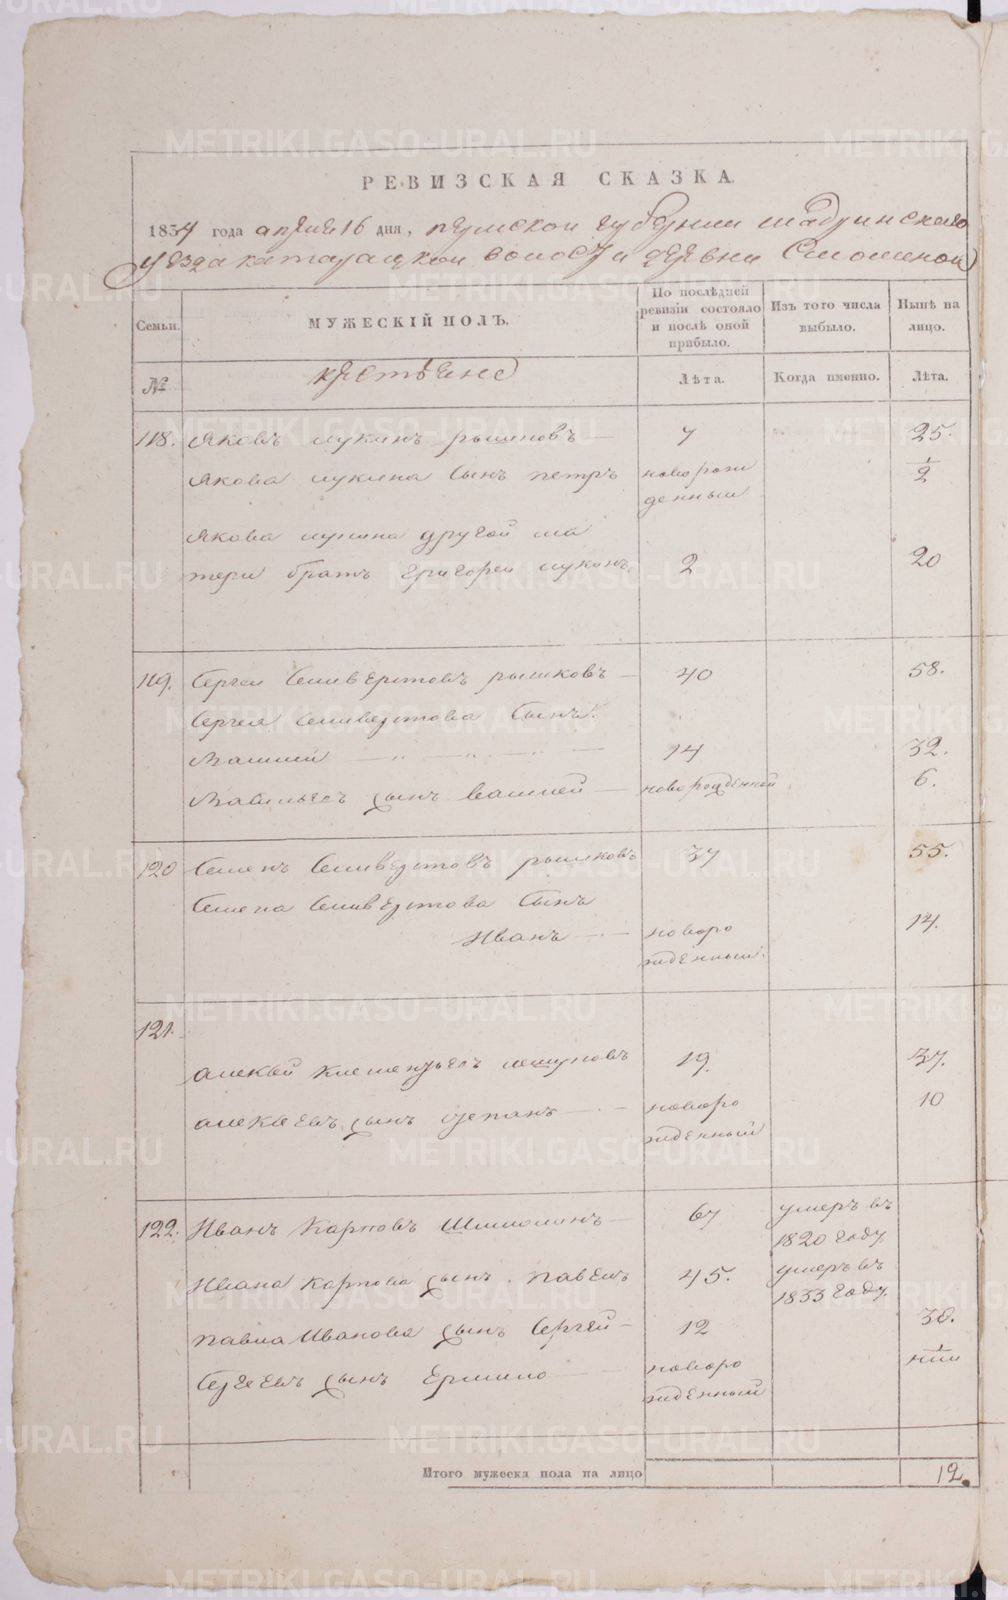 РЕВИЗСКАЯ СКАЗКА.
1834 года апреля 16 дня, пермской губернии шадринского
уезда катайацкой волости деревни
Семьи.
МУЖЕСКІЙ ПОЛЪ.
По послѣдней ревизіи состояло и послѣ оной прибыло.
Изъ того числа выбыло.
Нынѣ на лицо.
№
крестьяне
Лѣта.
Когда именно.
Лѣта.
118. Яковъ лукинъ 7 25.
Якова лукина сынъ петръ новорож 1/2
денныи
Якова лукина другой ма
тери братъ григореи лукинъ. 2 20
119. Сергеи Селиверстовъ рышковъ 40 58.
Сергея Селиверстова Сынъ.
14 32.
сынъ новорожденной 6.
120 Семенъ Селиверстовъ рышковъ 37 55.
Семена Селиверстова Сынъ
Иванъ новоро 14.
жденныи.
121.
алексѣй клементьевъ 19. 37.
алексѣевъ сынъ степанъ новоро 10
жденный
122. Иванъ Карповъ 67 умеръ въ
1820 году.
Ивана карпова сынъ павелъ 45. умеръ въ
1833 году.
павла Иванова сынъ Сергей 12 30.
Сергеевъ сынъ новоро
жденный
Итого мужеска пола на лицо 12.
METRIKI.GASO-URAL.RU